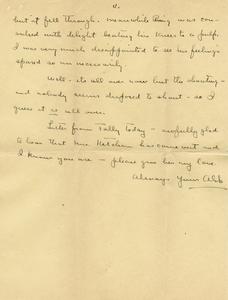 but it fell through. Meanwhile Craig was con-
sumed with delight beating his knees to a pulp.
I was very much disappointed to see his feelings
spared so unnecessarily
Well - its all over now but the shouting -
and nobody seems disposed to shout - so I
guess it is all over.
Letter from Tally today - awfully glad
to hear that Mrs. Ketcham has come west and
I know you are - please give her my love.
Always Yours